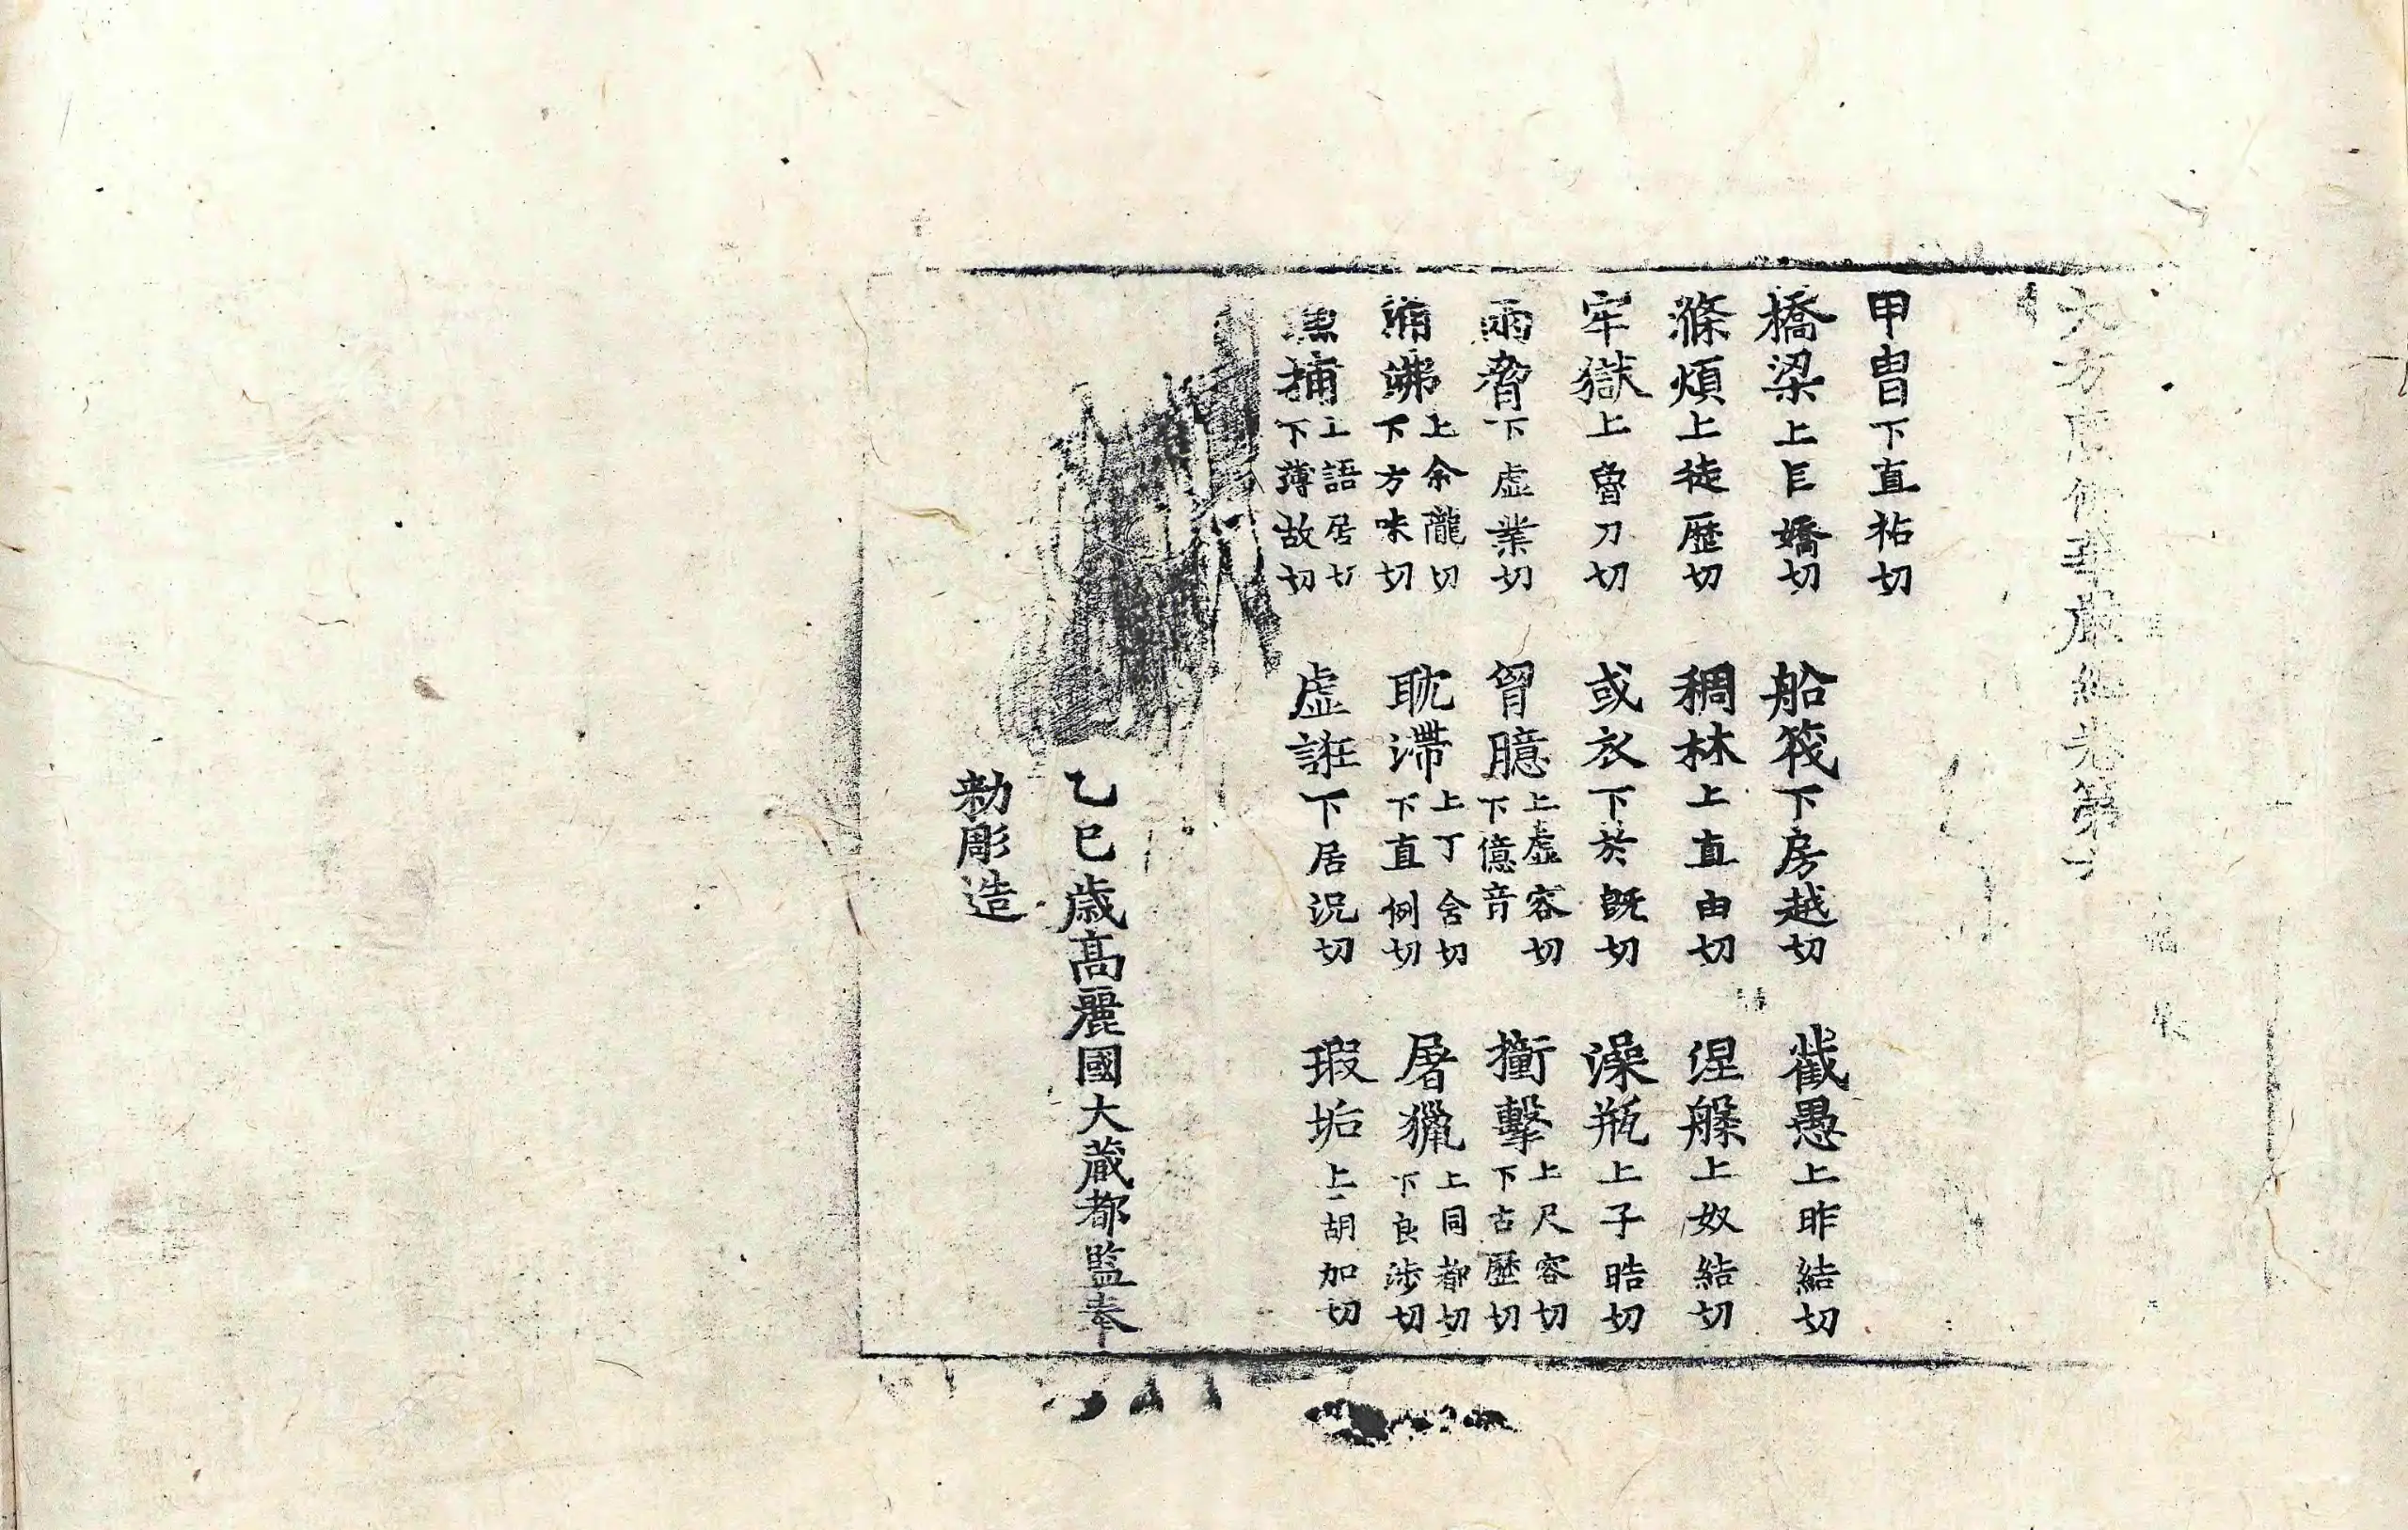 大方廣佛華嚴經卷第六
甲冑下直祐切
橋梁上巨嬌切 船筏下房越切 截愚上昨結切
滌煩上徒歷切 稠林上直由切 涅槃上奴結切
牢獄上魯刀切 或衣下於旣切 澡瓶上子晧切
兩脅下虛業切 胷臆上虛容切下億音 衝擊上尺容切下古歷切
涌沸上余隴切下方味切 耽滯上丁含切下直例切 屠獵上同都切下良涉切
漁捕上語居切下薄故切 虛誑下居況切 瑕垢上胡加切
乙巳歲高麗國大藏都監奉
勅彫造